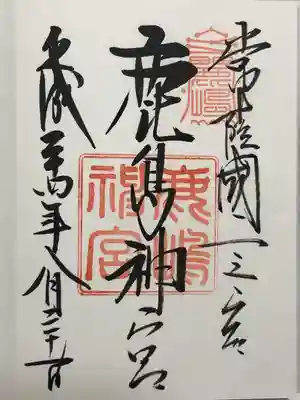 常陸國一之宮
鹿島神宮
平成二十四年八月二十日
鹿嶋神宮